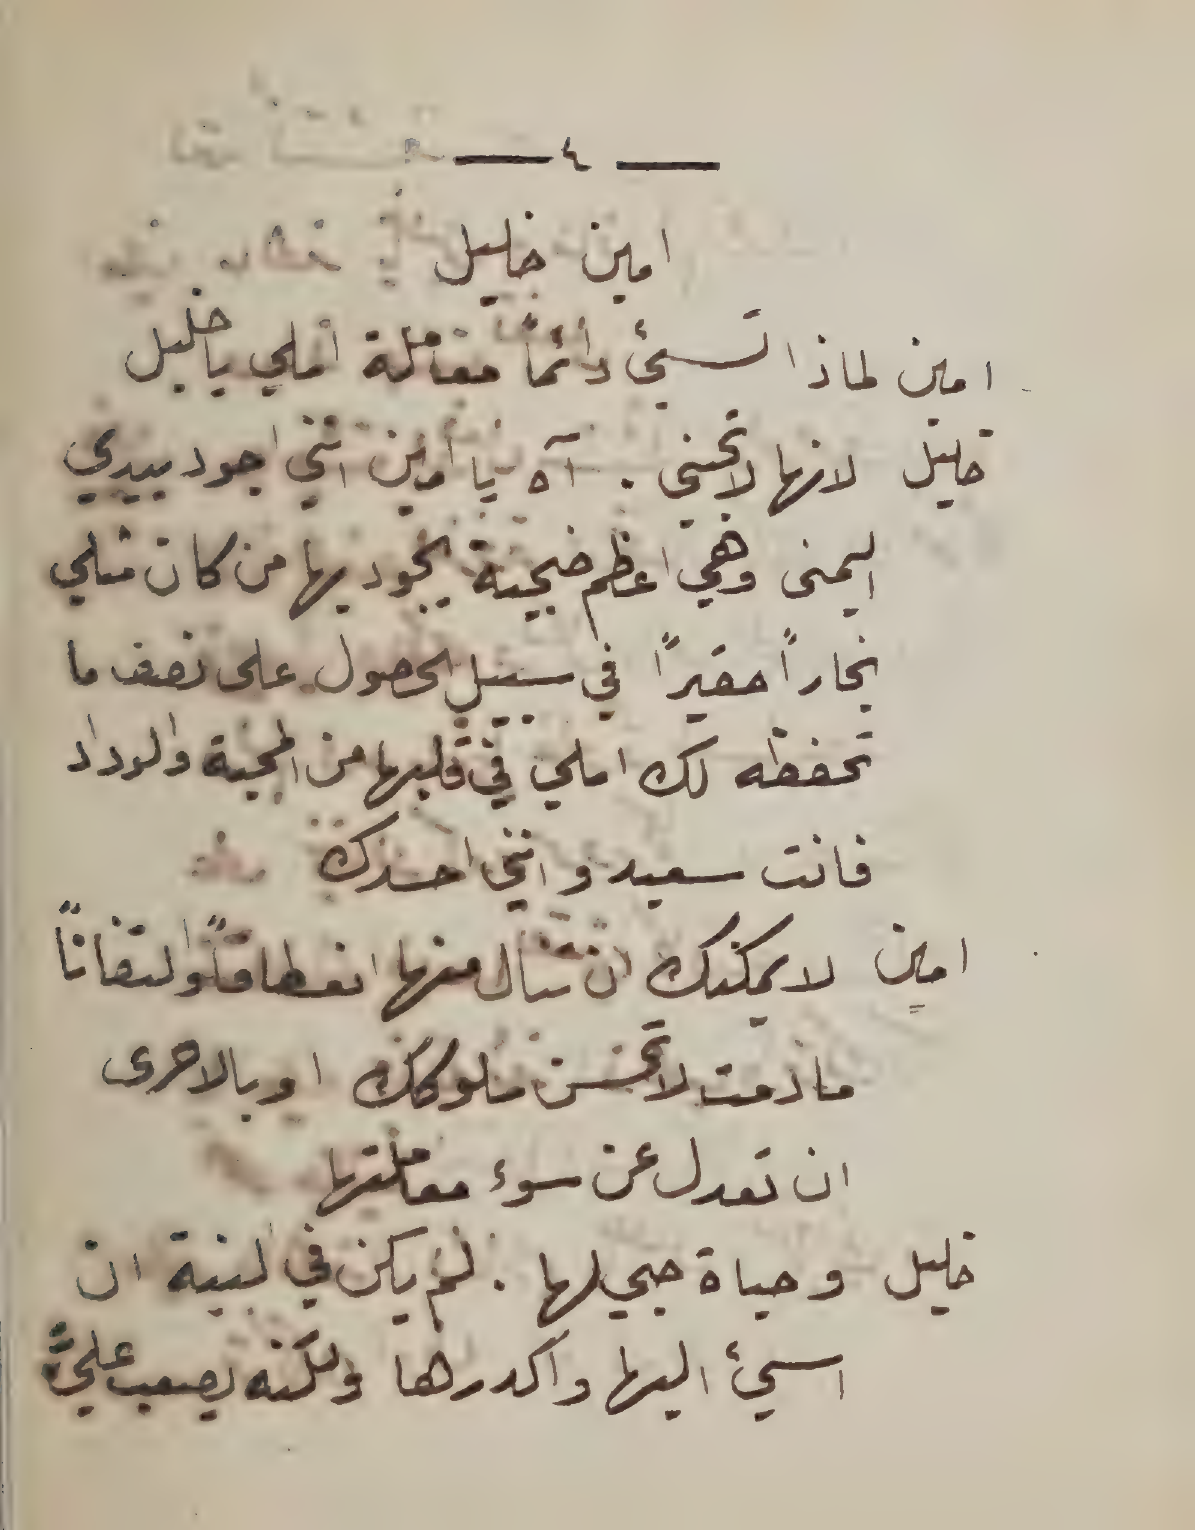 — ٤ —
امين خليل
امين لماذا تسيئ دائماً معاملة املي يا خليل
خليل لانها لا تحبني . آه يا امين انني اجود بيدي
اليمنى وهي اعظم ضحية يجود بها من كان مثلي
نجاراً حقيراً في سبيل الحصول على نصف ما
تحفظه لك املي في قلبها من المحبة والوداد
فانت سعيد وانني احسدك
امين لا يمكنك ان تنال منها انعطافاً والتفاتاً
ما دمت لا تحسن سلوكك او بالاحرى
ان تعدل عن سوء معاملتها
خليل وحياة حبي لها . لم يكن في النية ان
اسيئ اليها واكدرها ولكنه يصعب عليَّ